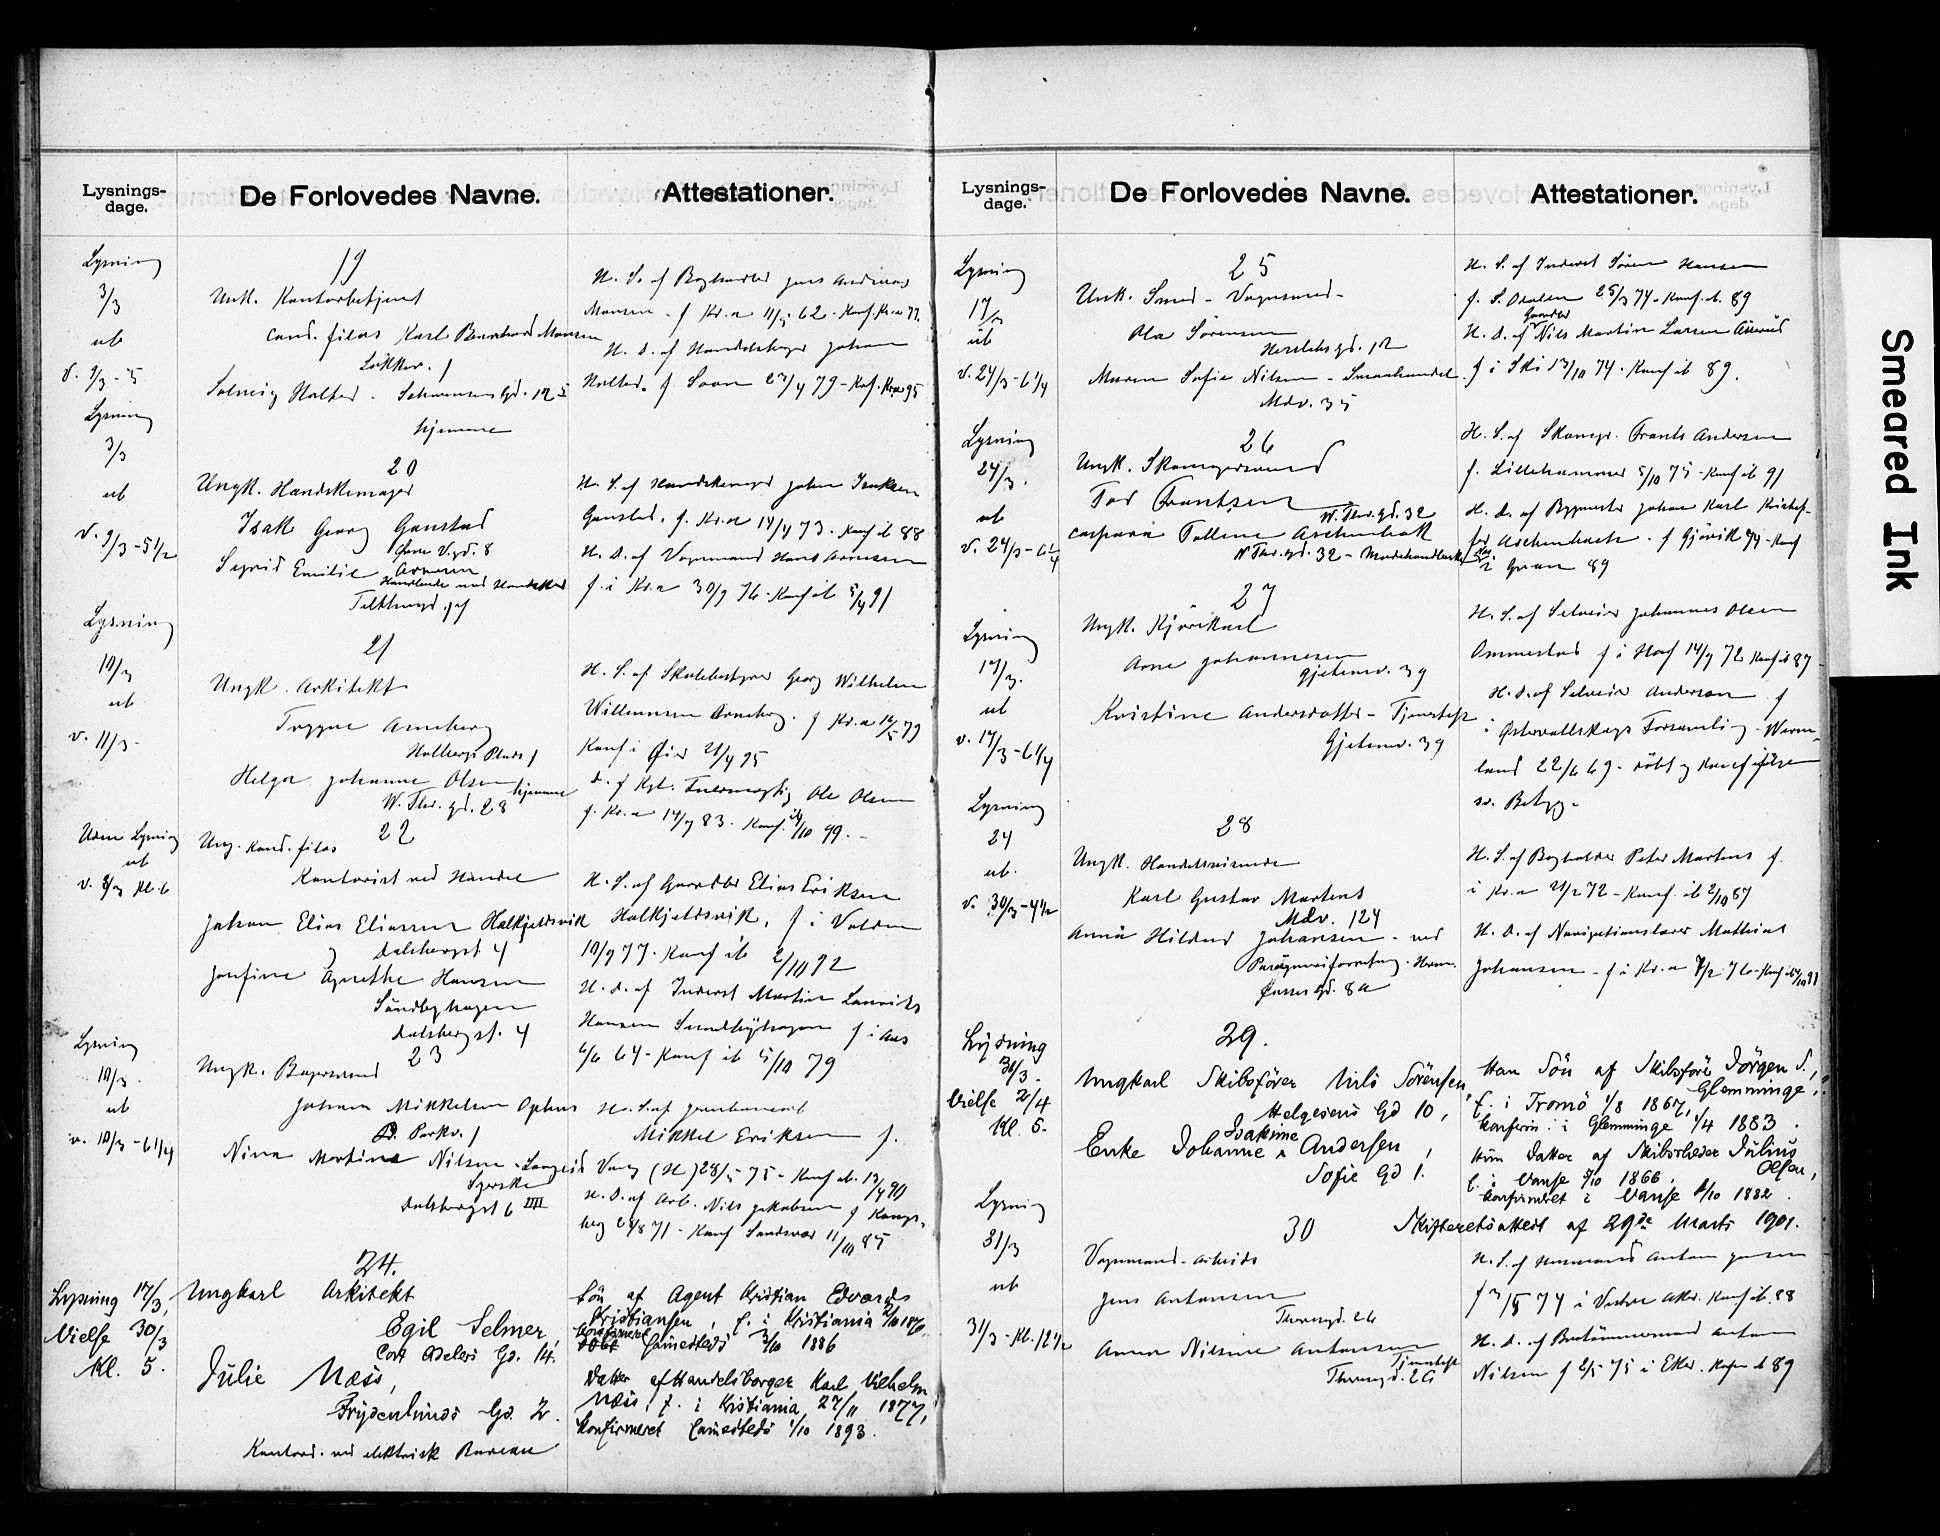 Lysnings-
dage.
De Forlovedes Navne.
Attestationer.
Lysning
3/3
ub
v. 9/3 - 5
19
Unk. Kontorbetjent
cand. filos Karl Bernhard Monsen
Løkkev. 1
Solveig Holted. Schwensens gd. 12
hjemme
N. S. af Boghandler Jens Andreas
Monsen - f Kr.a 11/5 62 - Konf. Kr.a 77.
N. D. af Handelsborger Johan
Holted. f. 79 - Kof. Kr.a 95
Lysning
3/3
ub
v. 9/3 - 5 1/2
20
Ungk. Handskemager
Isak Georg Ganstad
8
Sigrid Emilie Arnesen
Handlende med Handsker
N. S. af Handskemager Johan Isaksen
Ganstad. f. Kr.a 14/4 73. Konf. ib 88
N. D. af Vognmand Hans Arnesen
f. i Kr.a 30/9 76 - Konf ib 5/4 91
Lysning
10/3
ub
v. 11/3 -
21
Ungk. Arkitekt
Trygve Arneberg
Holbergs Plads 1
Helga Johanne Olsen hjemme
W. Thr. gd. 28
N. S. af Skolebestyrer Georg Wilhelm
Willumsen Arneberg. f Kr.a 16/5 79
Konf i Øier 21/4 95
D. f Kgl. Fuldmægtig Ole Olsen
f. Kr.a 14/4 83. Konf. /10 99. -
Uden Lysning
ub
v. 8/3 Kl. 6
22
Ung. Kand. filos
Kontorist ved Handel
Johan Elias Eliassen Halkjeldsvik
Dalsbergst 4
Josefine Agnethe Hansen
Sundbyhagen
Dalsbergst. 4
N. S. af Gaardbr Elias Eriksen
Halkjeldsvik, f. i Volden
10/9 77. Konf ib 2/10 92
N. D. af Inderst Martin Laurits
Hansen Sundbyhagen f. i Aas
6/6 64 - Konf ib 5/10 79
Lysning
10/3
ub
v. 10/3 - 6 1/4
23
Ungk. Bagersvend
Johan Mikkelsen Ophus
Parkv. 1
Nina Martine Nilsen - Langeid
Syerske
Dalsbergst 6 IIII
N. S. af
Mikkel Eriksen f.
Vang (H) 28/5 75 - Konf ib. 13/4 90
N. D. af Arb. Nils Jakobsen f Kongs-
berg 24/8 71 - Konf Sandsvær 11/10 85
Lysning 17/3,
Vielse 30/3
Kl. 5.
24.
Ungkarl Arkitekt
Egil Selmer,
Cort Adelers Gd. 14.
Julie Næss,
Frydenlunds Gd. 2.
Kontord. ved elektrisk Bureau
Søn af Agent Kristian Edvards
Kristiansen, f. i Kristiania 2/10 1870,
konfirmeret
døbt sammesteds 3/10 1886
Datter af Handelsborger Karl Vilhelm
Næss, f. i Kristiania 27/11 1877,
konfirmeret sammesteds 1/10 1893.
Lysnings-
dage.
De Forlovedes Navne.
Attestationer.
Lysning
17/3
ub
v. 24/3 - 6 1/4
25
Unk. Smed - Vognsmed -
Ola Sørensen
Herslebs gd. 12
Maren Sofie Nilsen - Smaahandel
Mdv. 35
N. S. af Inderst Søren Hansen
f. S. Odalen 25/3 74 - Konf. ib. 89
Gaardbr
N. D. af Nils Martin Larsen
f i Ski 13/10 74. Konf ib 89.
Lysning
24/3.
ub
v. 24/3 - 6 1/4
26
Ungk. Skomagersvend
Tor Frantzen
W. Thr. gd. 32
Caspara Palline Aschenbach
W Thr. gd. 32 - Modehandlerske
N. S. af Skomgr. Frants Andersen
f. Lillehammer 5/10 75 - Konf ib 91
N. D. af Bygmester Johan Karl Kristof-
fer Aschenbach - f Gjøvik - Konf
i Gran 89
Lysning
17/3.
ub
v. 17/3 - 6 1/4
27
Ungk. Kjørekarl
Arne Johannesen
Gjetemv. 39
Kristine Andersdatter - Tjeneste
Gjetemv. 39
N. S. af Selveier Johannes Olsen
Ommestad f i Hof 14/9 72 Konf ib 87 -
N. D. af Selveier Anderson f
i Østervallskogs Forsamling - Werm-
land 22/6 69 - døbt og konf ifølge
sv. Betyg. -
Lysning
24
ub.
v. 30/3 - 4 1/2
28
Ungk. Handelsreisende
Karl Gustav Martens
Mdv. 124
Anna Hildur Johansen - ved
gd. 8a
N. S. af Bogholder Peter Martens f.
i Kr.a 21/2 72 - Konf. ib 2/10 87
N. D. af Navigationslærer Mathias
Johansen - f i Kr.a 7/2 76 - Konf ib /10 91
Lysning
31/3.
Vielse 2/4
Kl. 5.
29.
Ungkarl Skibsfører Nils Sørensen,
Helgesens Gd 10,
Joakime
Enke Johanne Andersen,
Sofie Gd 1.
Han Søn af Skibsfører Jørgen S.,
Glemminge,
f. i Tromø 1/8 1867,
konfirm. i Glemminge 1/4 1883.
Hun Datter af Skibsreder Julius
Olsen,
f. i Vanse /10 1866,
konfirmeret i Vanse /10 1882.
Skifteretsattest af 29de Marts 1901.
Lysning
31/3
ub
31/3 - Kl. 12 1/2
30
Vognmand - Arbeids
Jens Antonsen
Thorvgd. 26
Anna Nilsine Antonsen
Tjeneste
Thorvgd. 26
N. S. af Husmand Anton Jensen
f 74 i Vestre Aker. Konf ib. 88
N. D. af Anton
Nilsen f 2/5 75 i Eker. Kofn ib 89
Smeared Ink